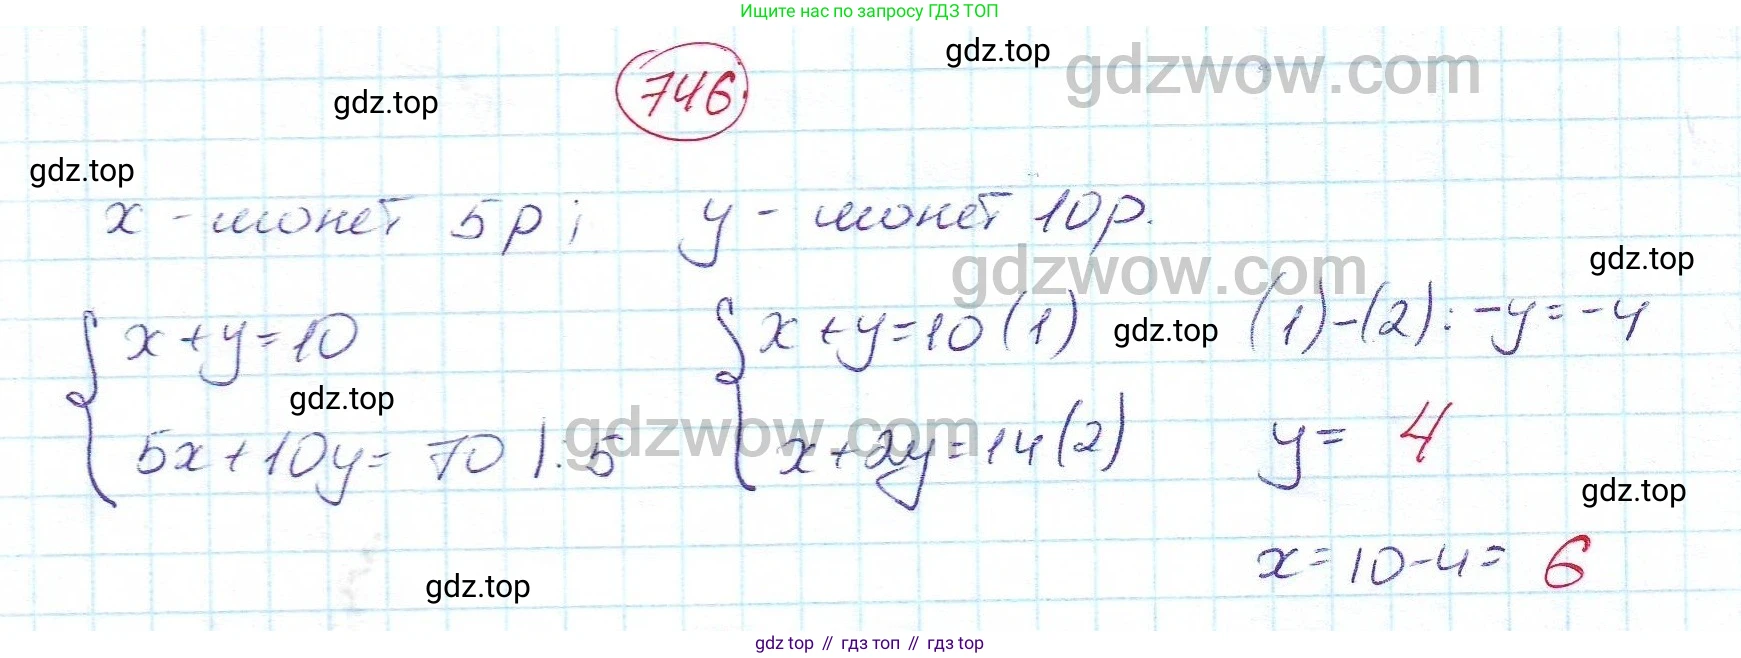 Ищите нас по запросу ГДЗ ТОП
gdz.top
gdzwow.com
746.
gdz.top
gdz.top
x - монет 5р; y - монет 10р.
gdzwow.com
gdz.top
{ x+y=10
5x+10y=70 |:5
{ x+y=10 (1)
x+2y=14 (2)
gdz.top
(1)-(2): -y=-4
gdz.top
gdzwow.com
y= 4
gdz.top
x=10-4= 6
gdz.top
gdz top // гдз топ // gdz top